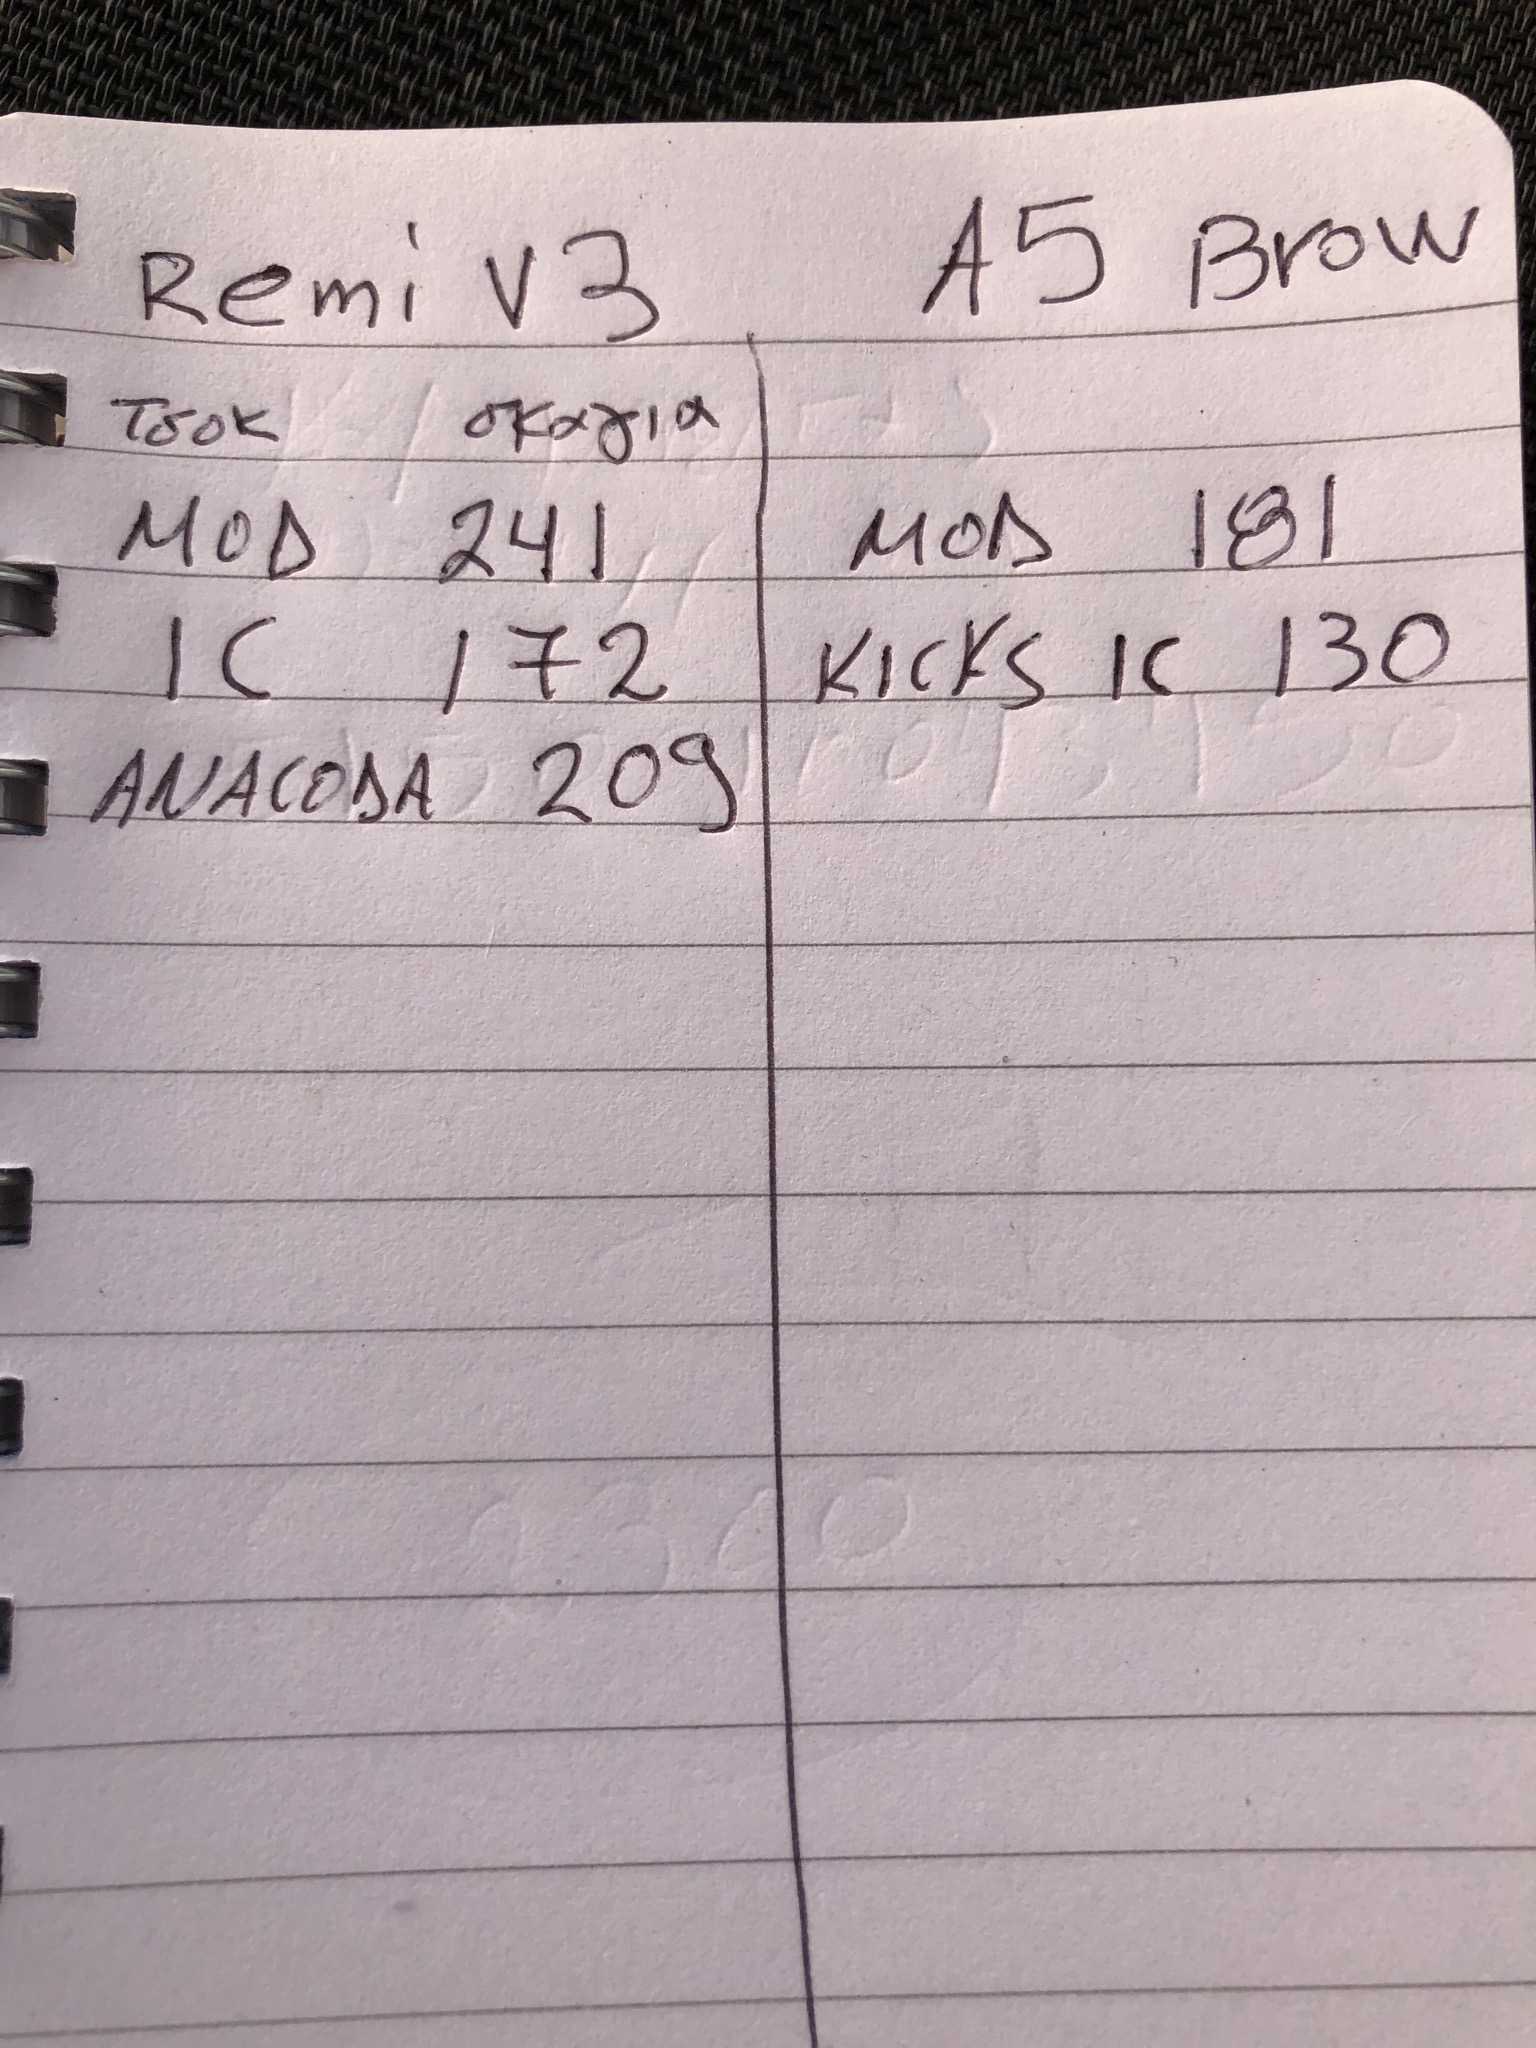 Remi V3 A5 Brow
Τσοκ σκαγια
MOD 241 MOD 181
IC 172 KICKS IC 130
ANACODA 209